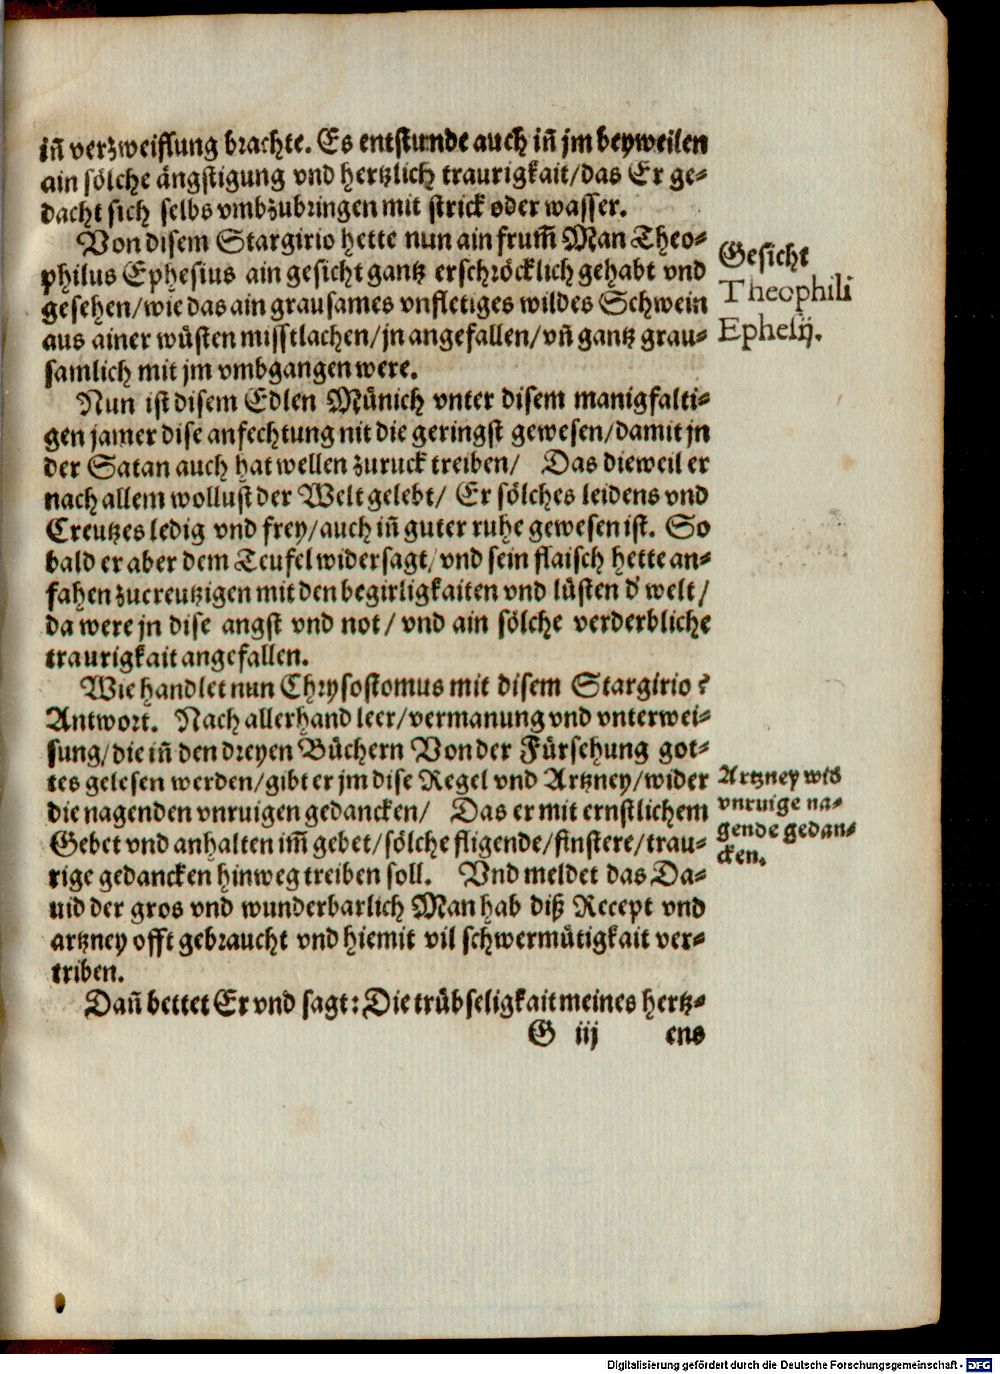 in̄ verzweiflung brachte. Es entstunde auch in̄ jm beyweilen
ain sölche ängstigung vnd hertzlich traurigkait/das Er ge-
dacht sich selbs vmbzubringen mit strick oder wasser.
Von disem Stargirio hette nun ain frum̄ Man Theo-
philus Ephesius ain gesicht gantz erschröcklich gehabt vnd
gesehen/wie das ain grausames vnfletiges wildes Schwein
aus ainer wüsten misstlachen/jn angefallen/vn̄ gantz grau-
samlich mit jm vmbgangen were.
Gesicht
Theophili
Ephesij.
Nun ist disem Edlen Münich vnter disem manigfalti-
gen jamer dise anfechtung nit die geringst gewesen/damit jn
der Satan auch hat wellen zuruck treiben/ Das dieweil er
nach allem wollust der Welt gelebt/ Er sölches leidens vnd
Creutzes ledig vnd frey/auch in̄ guter ruhe gewesen ist. So
bald er aber dem Teufel widersagt/vnd sein flaisch hette an-
fahen zucreutzigen mit den begirligkaiten vnd lüsten d' welt/
da were jn dise angst vnd not/vnd ain sölche verderbliche
traurigkait angefallen.
Wie handlet nun Chrysostomus mit disem Stargirio?
Antwort. Nach allerhand leer/vermanung vnd vnterwei-
sung/die in̄ den dreyen Büchern Von der Fürsehung got-
tes gelesen werden/gibt er jm dise Regel vnd Artzney/wider
die nagenden vnruigen gedancken/ Das er mit ernstlichem
Gebet vnd anhalten im̄ gebet/sölche fligende/finstere/trau-
rige gedancken hinweg treiben soll. Vnd meldet das Da-
uid der gros vnd wunderbarlich Man hab diß Recept vnd
artzney offt gebraucht vnd hiemit vil schwermütigkait ver-
triben.
Artzney wid
vnruige na-
gende gedan-
cken.
Dan̄ bettet Er vnd sagt: Die trübseligkait meines hertz-
G iij ens
Digitalisierung gefördert durch die Deutsche Forschungsgemeinschaft - DFG